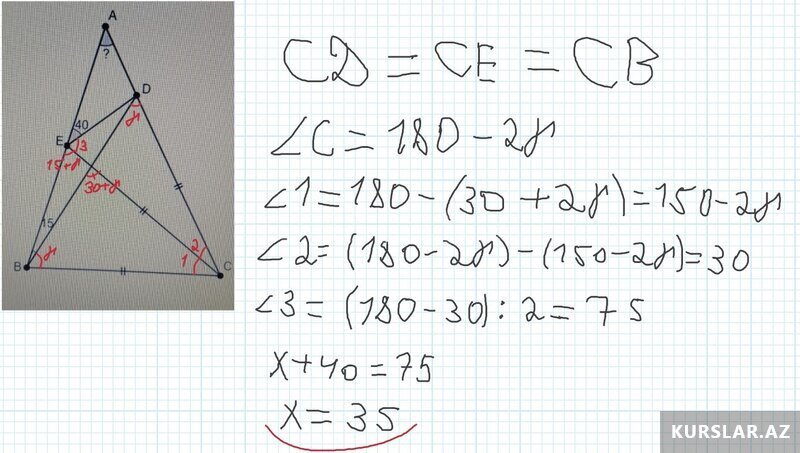 A
?
D
40
E
3
γ
15+γ
30+γ
15
2
B
γ
1
C
CD = CE = CB
∠C = 180 - 2γ
∠1 = 180 - (30 + 2γ) = 150 - 2γ
∠2 = (180 - 2γ) - (150 - 2γ) = 30
∠3 = (180 - 30) : 2 = 75
x + 40 = 75
x = 35
KURSLAR.AZ